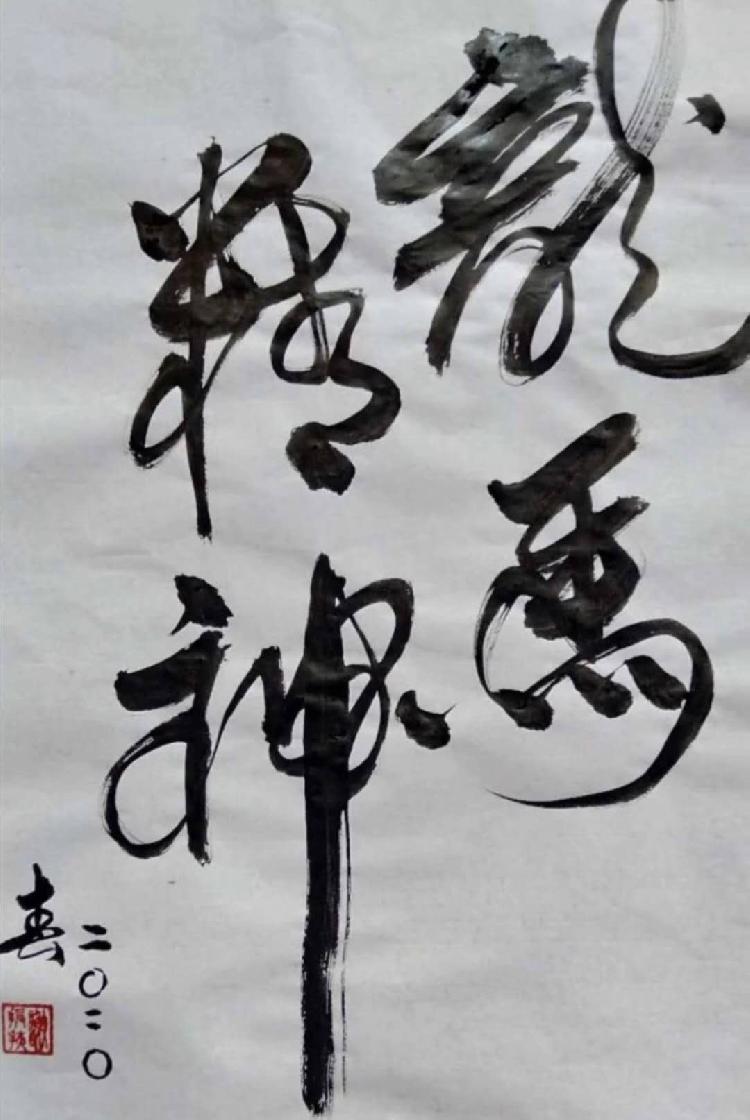 龍馬
精神
二〇二〇
春